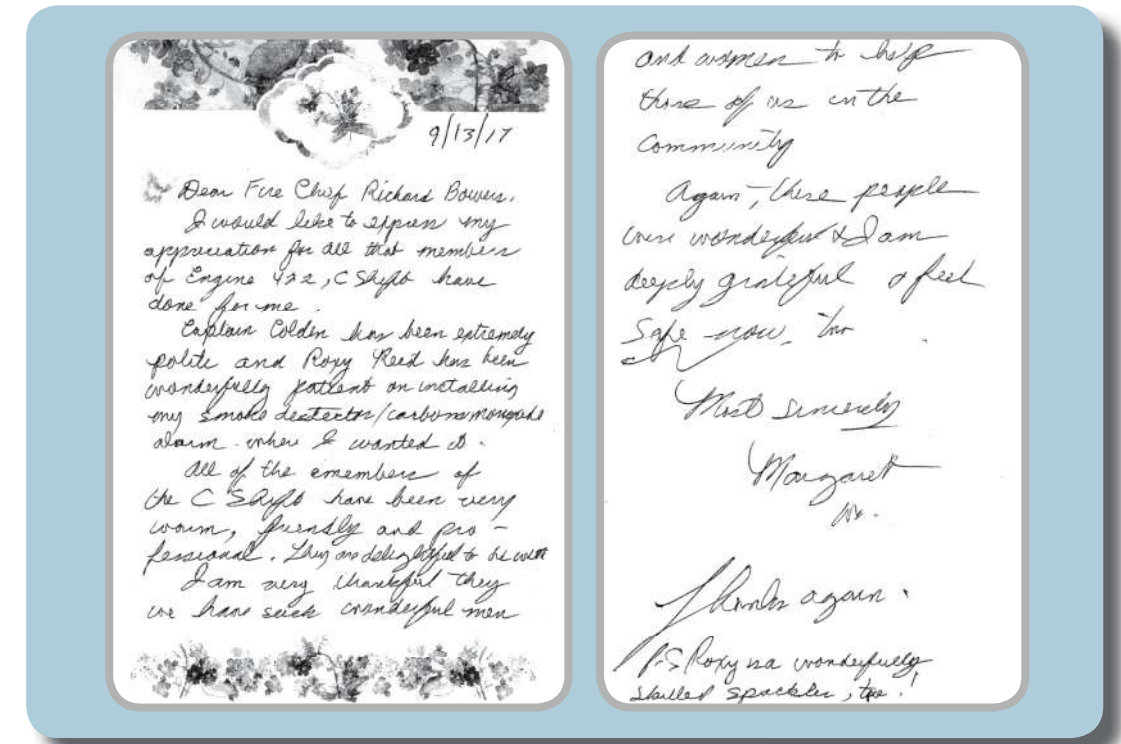 9/13/17
Dear Fire Chief Richard Bowers,
I would like to express my
appreciation for all that members
of Engine 422, C Shift have
done for me.
Captain Colden has been extremely
polite and Roxy Reed has been
wonderfully patient on installing
my smoke destector/carbonmonoxide
alarm where I wanted it.
All of the members of
the C Shift have been very
warm, friendly and pro-
fessional. They are delightful to be with
I am very thankful they
we have such wonderful men
and women to help
those of us in the
Community
Again, these people
were wonderful & I am
deeply grateful & feel
Safe now, too.
Most sincerely
Margaret
Thanks again.
P.S Roxy is a wonderfully
skilled spackler, too!